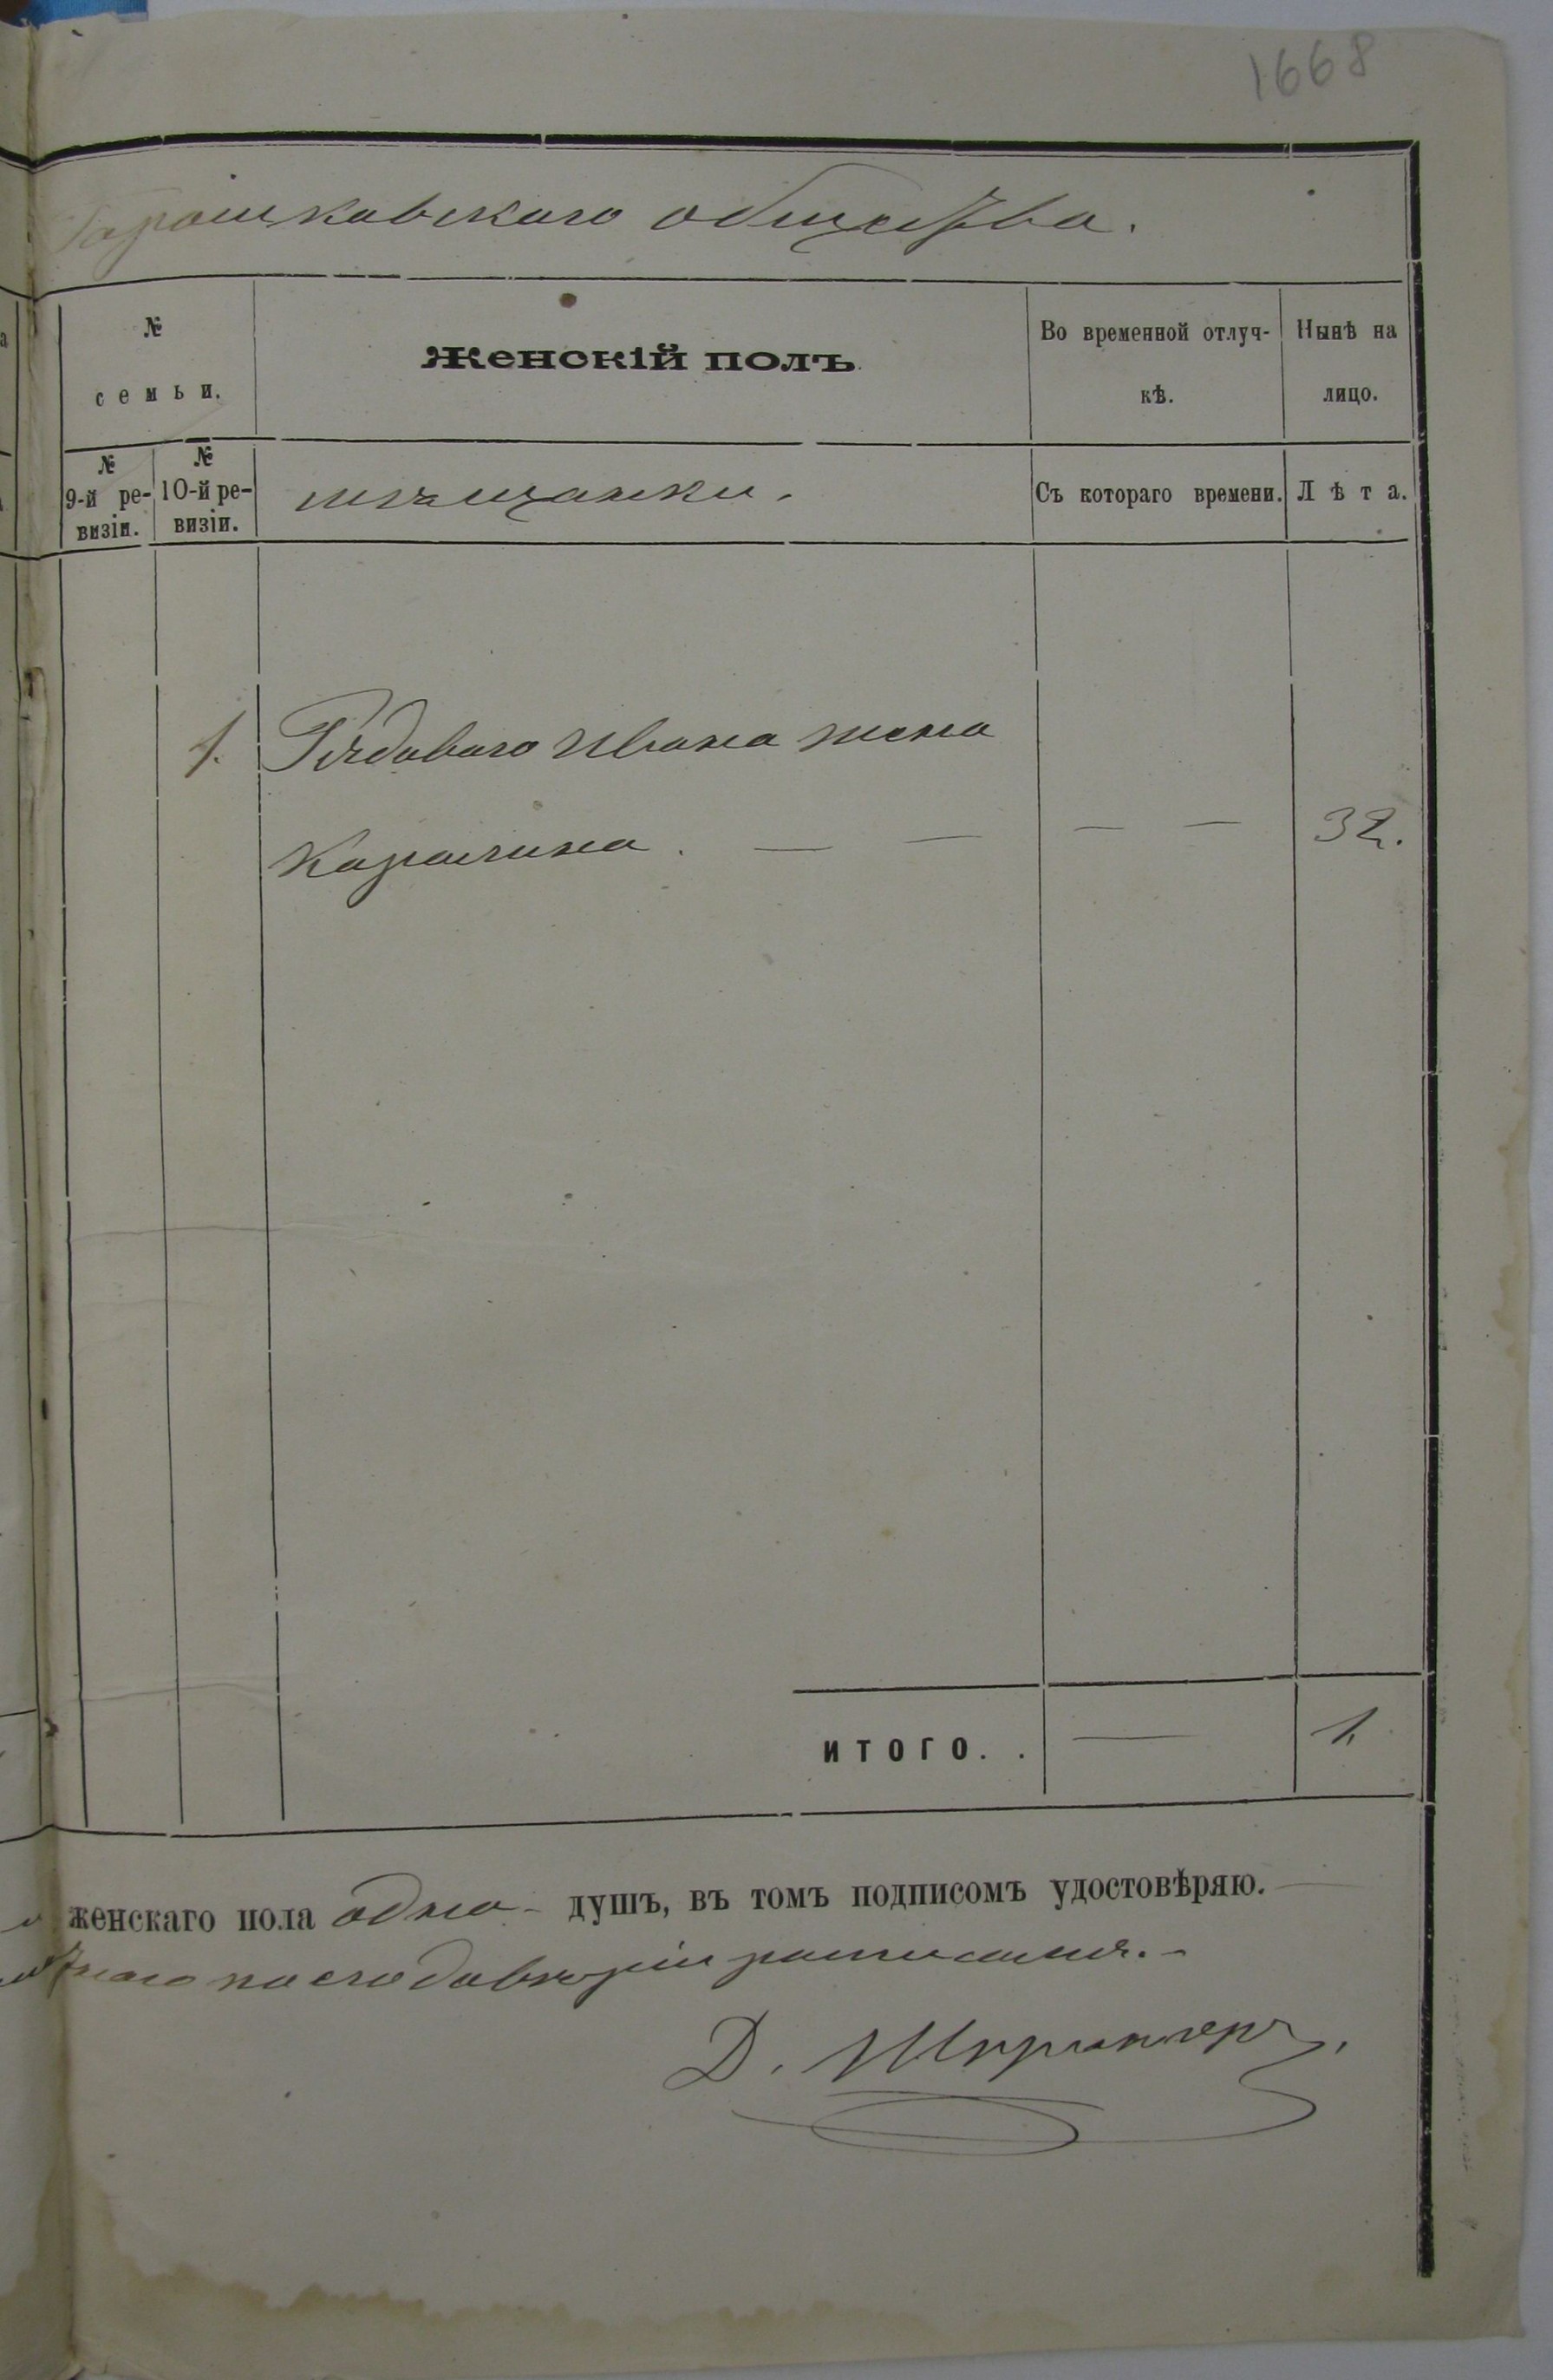 1668
Гарашковскаго общества.
№
семьи.
Женскій полъ.
Во временной отлуч-
кѣ.
Нынѣ на
лицо.
№
9-й ре-
визіи.
№
10-й ре-
визіи.
мѣщанки.
Съ котораго времени.
Лѣта.
1. Рядоваго Ивана жена
Каралина. — — — — 32.
ИТОГО. . — 1.
женскаго пола одна - душъ, въ томъ подписомъ удостовѣряю.
росписался. -
Д.